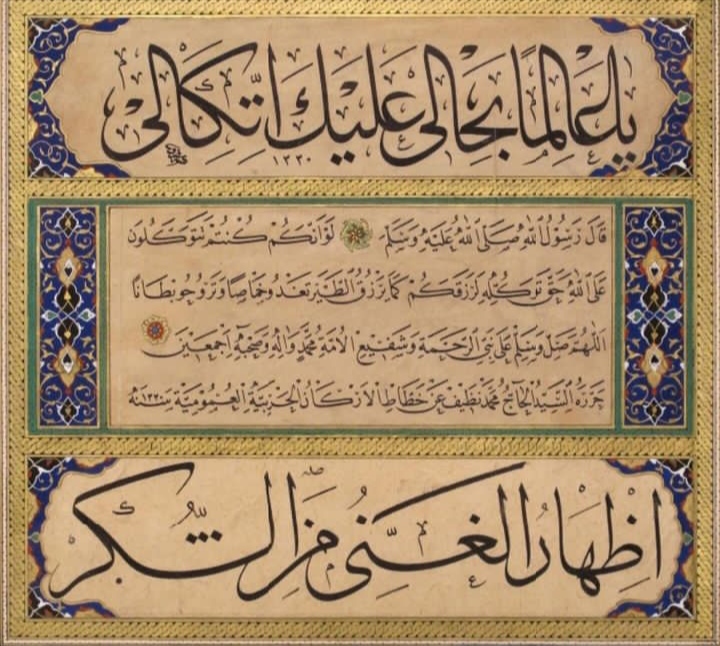 يا عالما بحالي عليك اتكالي
١٣٣٠
قَالَ رَسُولُ اللّٰهِ صَلَّى اللّٰهُ عَلَيْهِ وَسَلَّمَ لَوْ اَنَّكُمْ كُنْتُمْ تَتَوَكَّلُونَ
عَلَى اللّٰهِ حَقَّ تَوَكُّلِهِ لَرَزَقَكُمْ كَمَا يَرْزُقُ الطَّيْرَ تَغْدُو خِمَاصًا وَتَرُوحُ بِطَانًا
اَللّٰهُمَّ صَلِّ وَسَلِّمْ عَلَى نَبِيِّ الرَّحْمَةِ وَشَفِيعِ الْاُمَّةِ مُحَمَّدٍ وَاٰلِهِ وَصَحْبِهِ اَجْمَعِينَ
حَرَّرَهُ السَّيِّدُ الْحَاجُّ مُحَمَّدْ نَظِيفْ عَنْ خَطَّاطِ الْاَرْكَانِ الْحَرْبِيَّةِ الْعُمُومِيَّةِ سنة
اظهار الغنى من الشكر